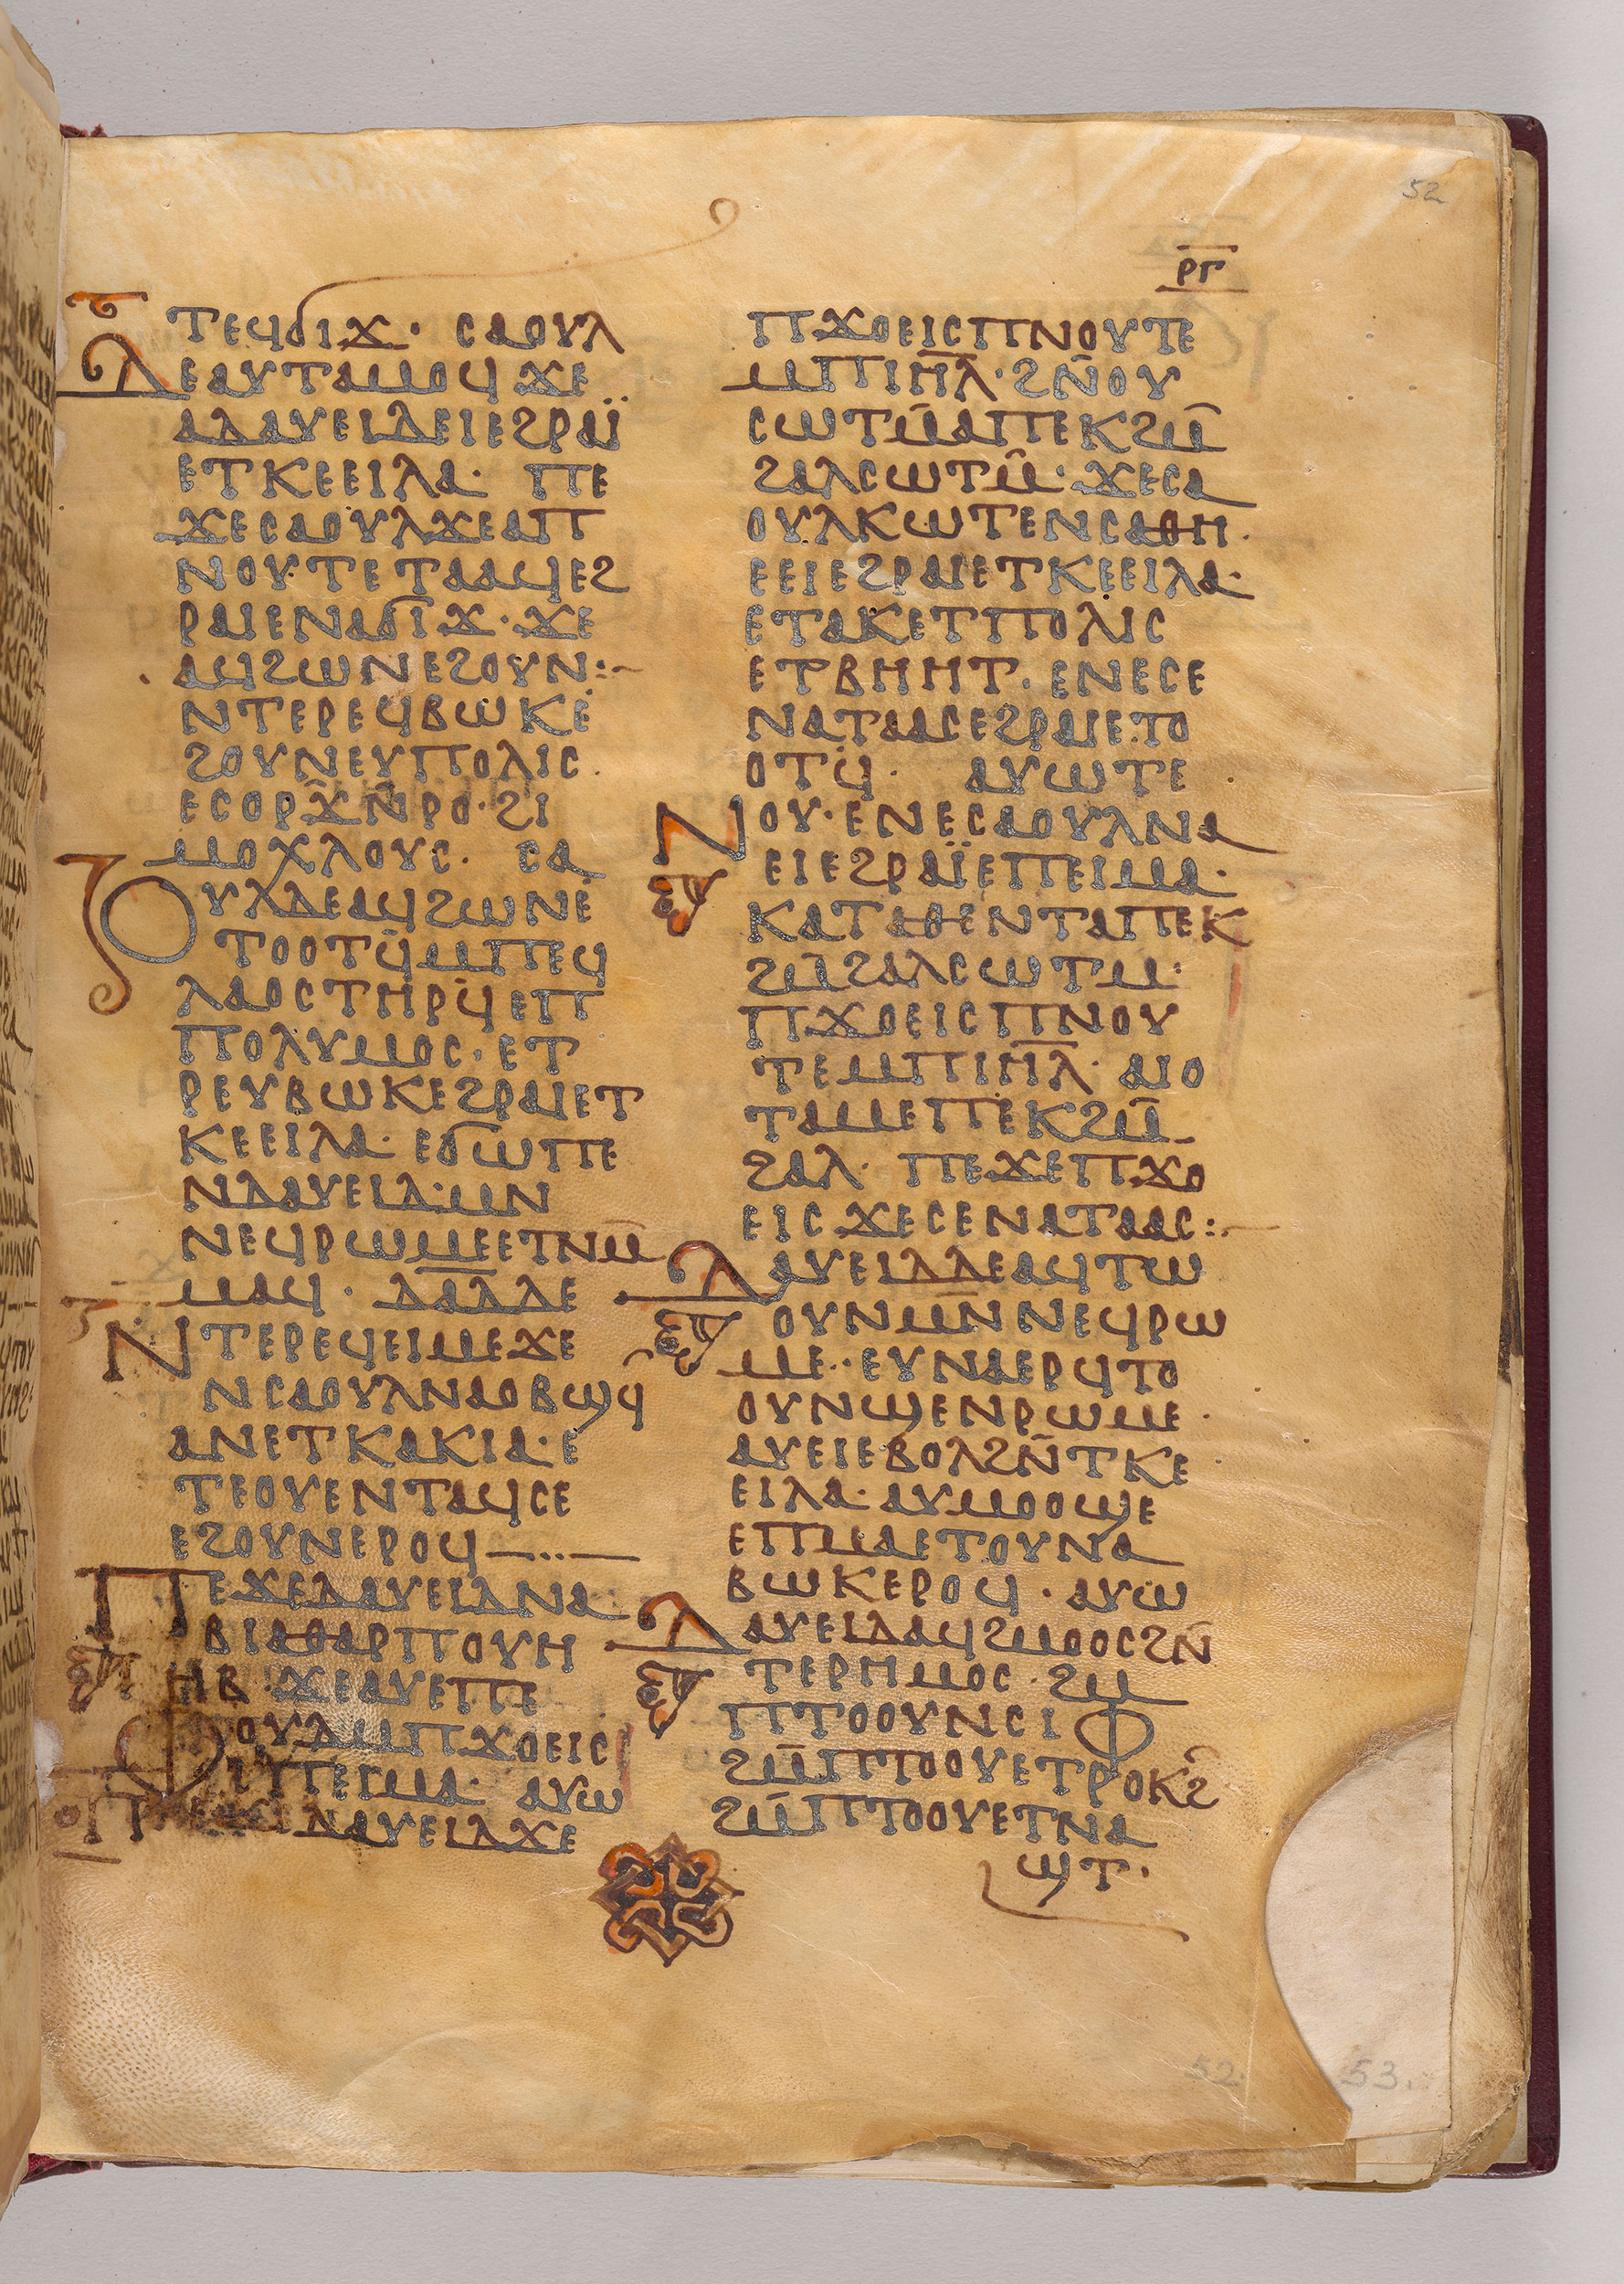 52
ⲣⲅ
ⲧⲉϥϭⲓϫ· ⲥⲁⲟⲩⲗ
ⲇⲉⲁⲩⲧⲁⲙⲟϥϫⲉ
ⲁⲇⲁⲩⲉⲓⲇⲉⲓⲉϩⲣⲁⲓ̈
ⲉⲧⲕⲉⲉⲓⲗⲁ· ⲡⲉ
ϫⲉⲥⲁⲟⲩⲗϫⲉⲁⲡ
ⲛⲟⲩⲧⲉⲧⲁⲁϥⲉϩ
ⲣⲁⲓⲉⲛⲁϭⲓϫ· ϫⲉ
ⲁϥϩⲱⲛⲉϩⲟⲩⲛ:
ⲛⲧⲉⲣⲉϥⲃⲱⲕⲉ
ϩⲟⲩⲛⲉⲩⲡⲟⲗⲓⲥ
ⲉⲥⲟⲣϫ̄ⲛ̄ⲣⲟ· ϩⲓ
ⲙⲟⲭⲗⲟⲩⲥ· ⲥⲁ
ⲟⲩⲗⲇⲉⲁϥϩⲱⲛⲉ
ⲧⲟⲟⲧϥ̄ⲙⲡⲉϥ
ⲗⲁⲟⲥⲧⲏⲣϥ̄ⲉⲡ
ⲡⲟⲗⲩⲙⲟⲥ· ⲉⲧ
ⲣⲉⲩⲃⲱⲕⲉϩⲣⲁⲓⲉⲧ
ⲕⲉⲉⲓⲗⲁ· ⲉϭⲱⲡⲉ
ⲛⲇⲁⲩⲉⲓⲇ· ⲙⲛ
ⲛⲉϥⲣⲱⲙⲉⲉⲧⲛⲙ̄
ⲙⲁϥ· ⲇⲁ̄ⲇ̄ⲇⲉ
ⲛⲧⲉⲣⲉϥⲉⲓⲙⲉϫⲉ
ⲛⲥⲁⲟⲩⲗⲛⲁⲟⲃϣϥ̄
ⲁⲛⲉⲧⲕⲁⲕⲓⲁ· ⲉ
ⲧⲉⲟⲩⲉⲛⲧⲁϥⲥⲉ
ⲉϩⲟⲩⲛⲉⲣⲟϥ
ⲡⲉϫⲉⲇⲁⲩⲉⲓⲇⲛⲁ
ⲃⲓⲁⲑⲁⲣⲡⲟⲩⲏ
ⲏⲃ· ϫⲉⲁⲩⲉⲡⲉ
ⲫⲟⲩⲇⲙⲡϫⲟⲉⲓⲥ
ⲡⲉⲓⲙⲁ· ⲁⲩⲱ
ⲇⲁⲩⲉⲓⲇϫⲉ
ⲡϫⲟⲉⲓⲥⲡⲛⲟⲩⲧⲉ
ⲙⲡⲓⲏ̄ⲗ̄· ϩⲛ̄ⲟⲩ
ⲥⲱⲧⲙ̄ⲁⲡⲉⲕϩⲙ̄
ϩⲁⲗⲥⲱⲧⲙ̄· ϫⲉⲥⲁ
ⲟⲩⲗⲕⲱⲧⲉⲛⲥⲁⲑⲏ
ⲉⲉⲓⲉϩⲣⲁⲓⲉⲧⲕⲉⲉⲓⲗⲁ·
ⲉⲧⲁⲕⲉⲧⲡⲟⲗⲓⲥ
ⲉⲧⲃⲏⲏⲧ. ⲉⲛⲉⲥⲉ
ⲛⲁⲧⲁⲁⲥⲉϩⲣⲁⲓⲉⲧⲟ
ⲟⲧϥ̄· ⲁⲩⲱⲧⲉ
ⲛⲟⲩ· ⲉⲛⲉⲥⲁⲟⲩⲗⲛⲁ
ⲉⲓⲉϩⲣⲁⲓ̈ⲉⲡⲉⲓⲙⲁ·
ⲕⲁⲧⲁⲑⲉⲛⲧⲁⲡⲉⲕ
ϩⲙ̄ϩⲁⲗⲥⲱⲧⲙ·
ⲡϫⲟⲉⲓⲥⲡⲛⲟⲩ
ⲧⲉⲙⲡⲓⲏ̄ⲗ̄· ⲁⲓⲟ
ⲧⲁⲙⲉⲡⲉⲕϩⲙ̄
ϩⲁⲗ· ⲡⲉϫⲉⲡϫⲟ
ⲉⲓⲥϫⲉⲥⲉⲛⲁⲧⲁⲁⲥ:
ⲇⲁⲩⲉⲓⲇⲇⲉⲁϥⲧⲱ
ⲟⲩⲛⲙⲛ̄ⲛⲉϥⲣⲱ
ⲙⲉ· ⲉⲩⲛⲁⲉⲣϥⲧⲟ
ⲟⲩⲛϣⲉⲛⲣⲱⲙⲉ·
ⲁⲩⲉⲓⲉⲃⲟⲗϩⲛ̄ⲧⲕⲉ
ⲉⲓⲗⲁ· ⲁⲩⲙⲟⲟϣⲉ
ⲉⲡⲙⲁⲉⲧⲟⲩⲛⲁ
ⲃⲱⲕⲉⲣⲟϥ· ⲁⲩⲱ
ⲇⲁⲩⲉⲓⲇⲁϥϩⲙⲟⲟⲥϩⲛ̄
ⲧⲉⲣⲏⲙⲟⲥ· ϩⲙ
ⲡⲧⲟⲟⲩⲛⲥⲓⲫ
ϩⲙ̄ⲡⲧⲟⲟⲩⲉⲧⲣⲟⲕϩ̄
ϩⲙ̄ⲡⲧⲟⲟⲩⲉⲧⲛⲁ
ϣⲧ·
52
53.